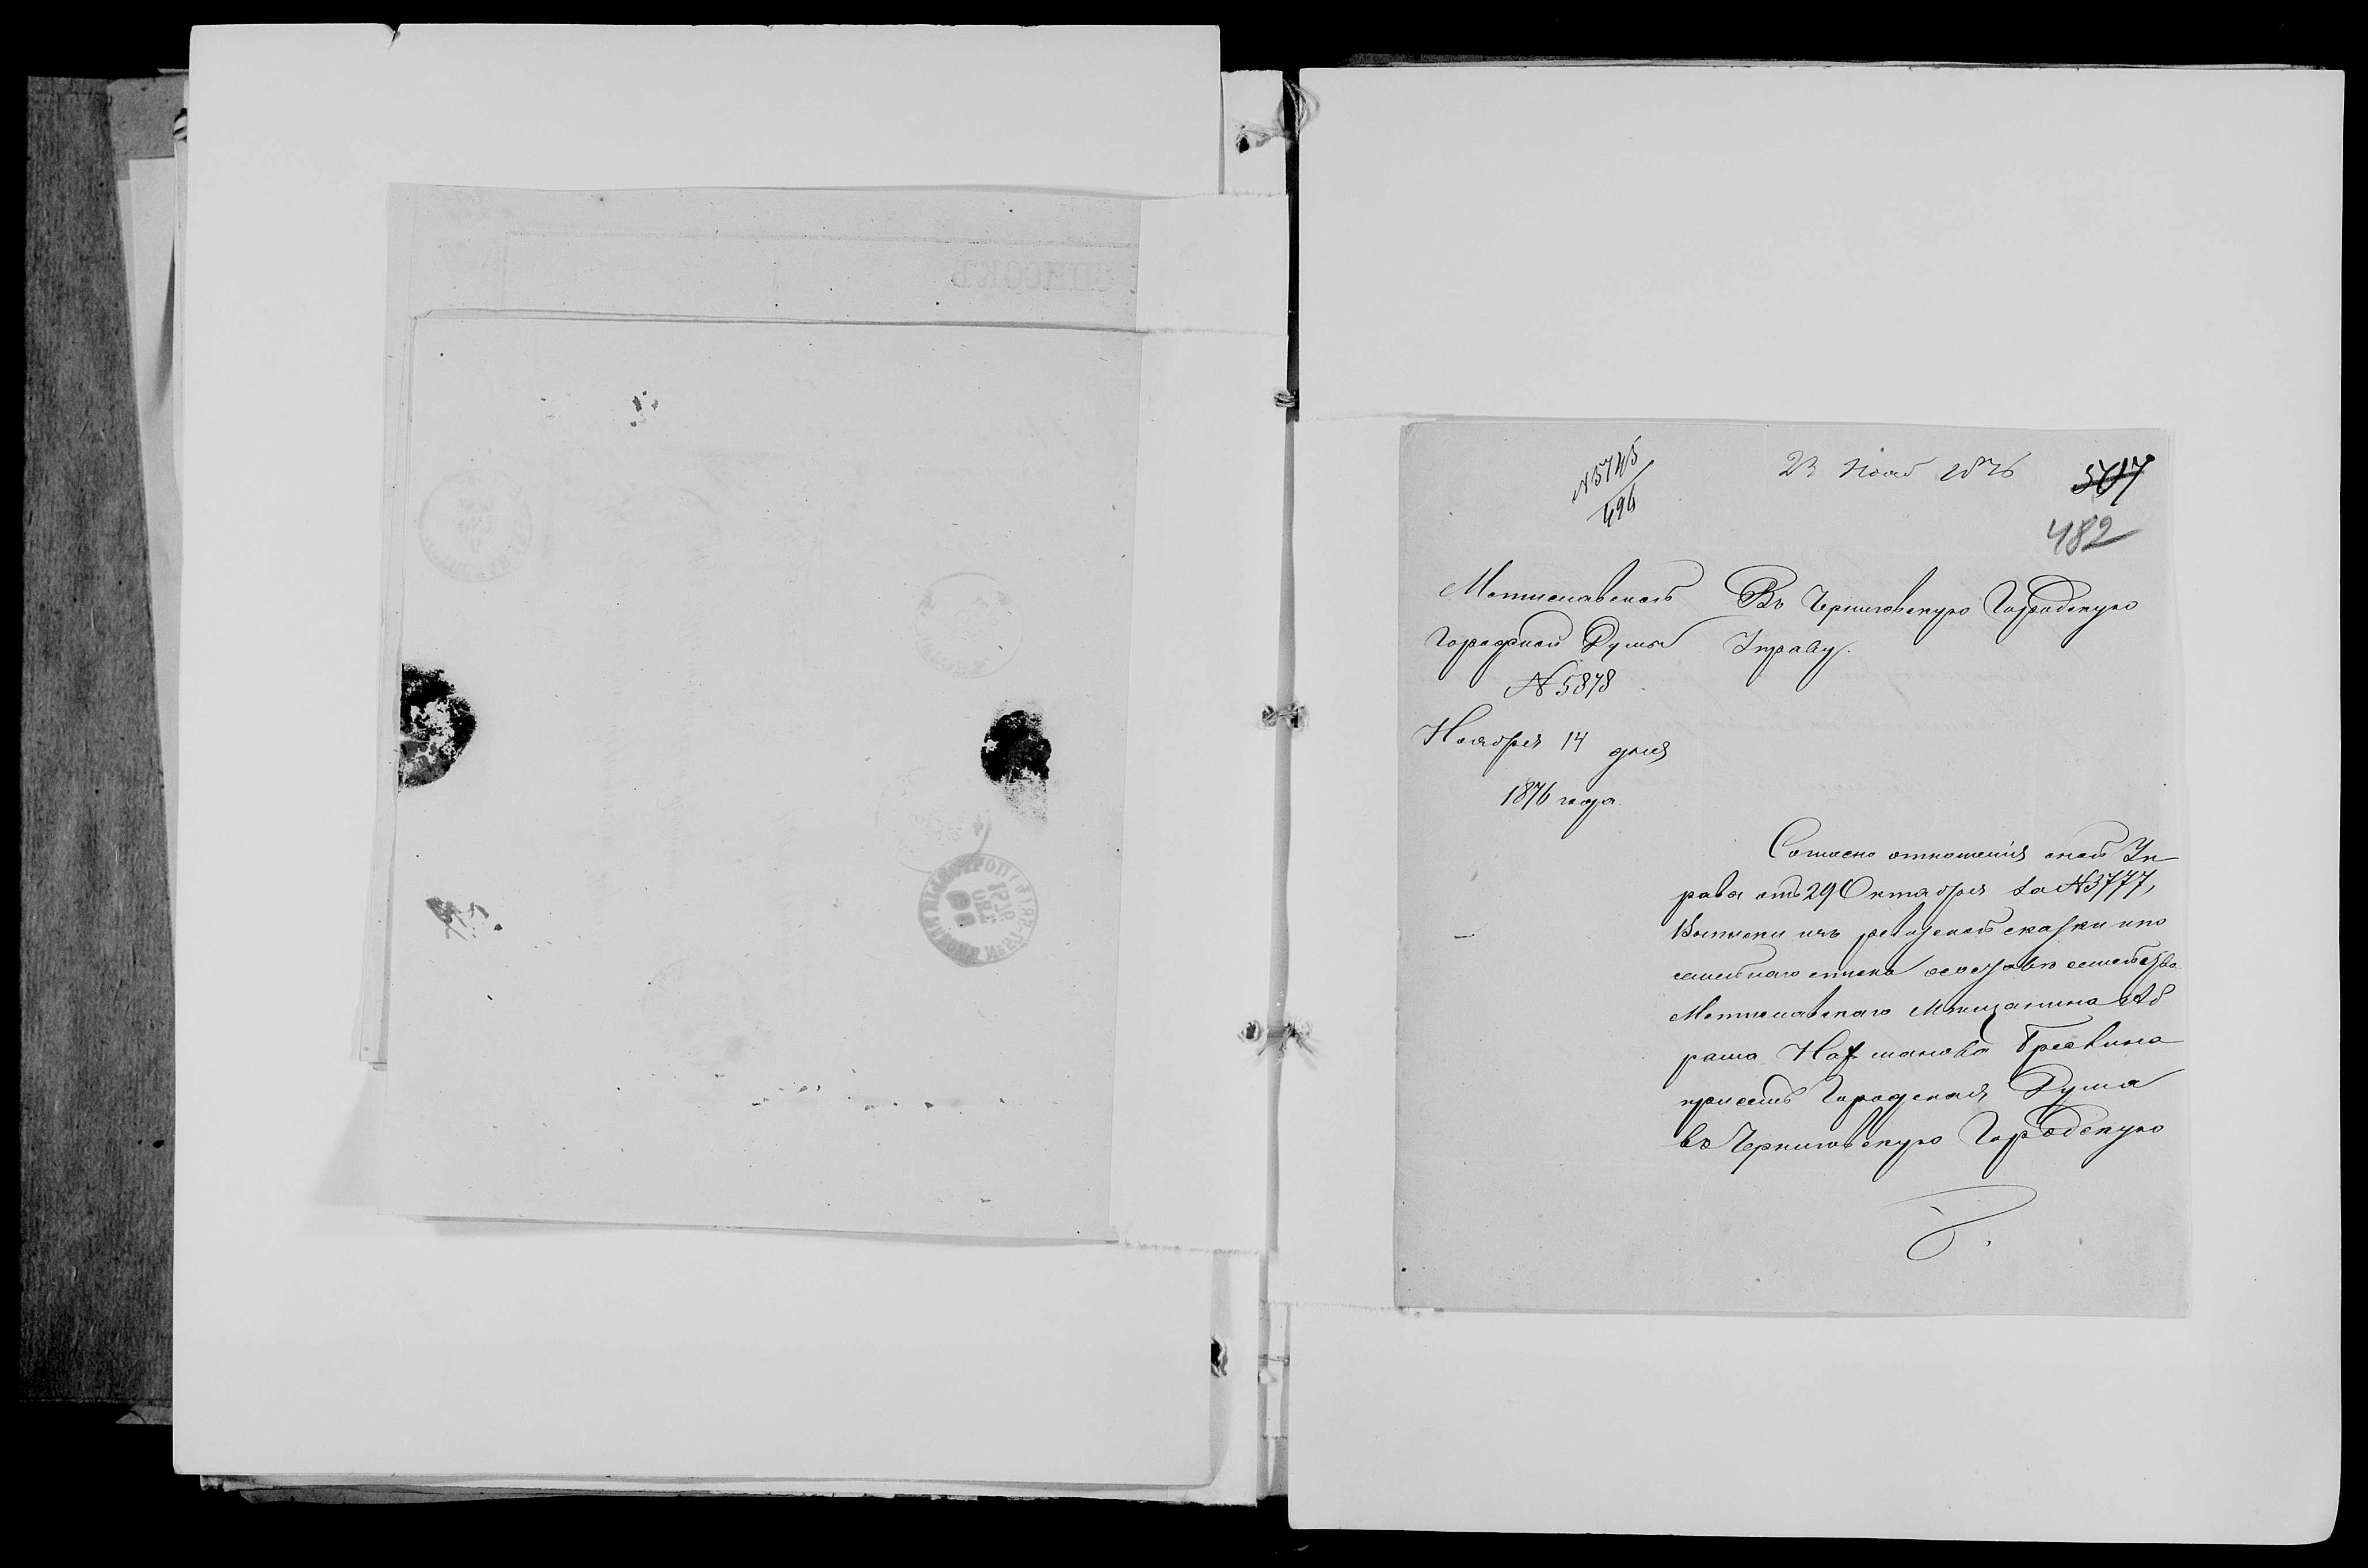 СПИСОКЪ
1876
N 5745
496
23 Нояб 1876
482
Мстиславской
Городской Думы
N 5878
Ноября 14 дня
1876 года.
Въ Черниговскую Городскую
Управу.
Согласно отношенія оной Уп
равы отъ 29 Октября за N 3777,
Выписки изъ ревизской сказки и по
семейнаго списка о составѣ семейства
Мстиславскаго Мѣщанина Аб
рама
Городская Дума
въ Черниговскую Городскую